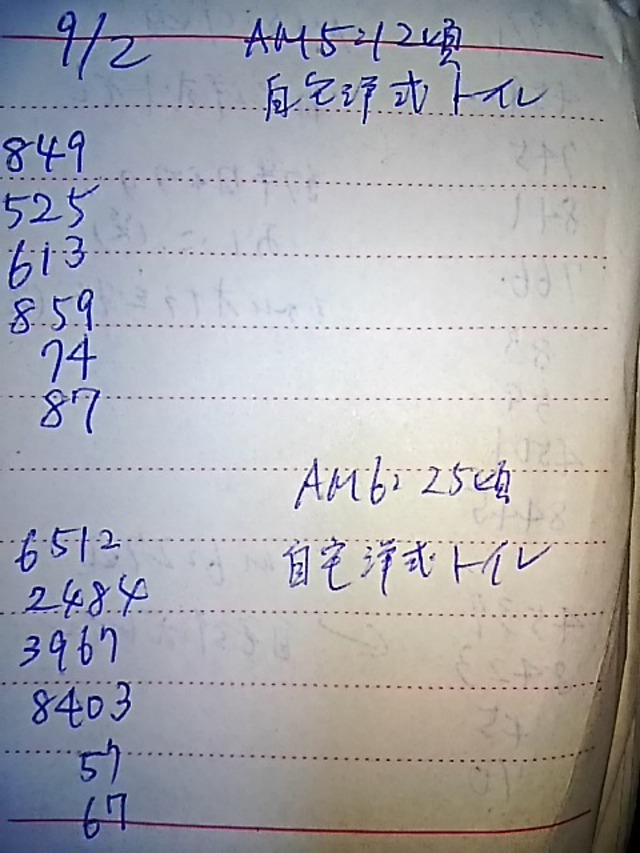 9/2 AM5:12頃
自宅洋式トイレ
849
525
613
859
74
87
AM6:25頃
自宅洋式トイレ
6512
2484
3967
8403
57
67